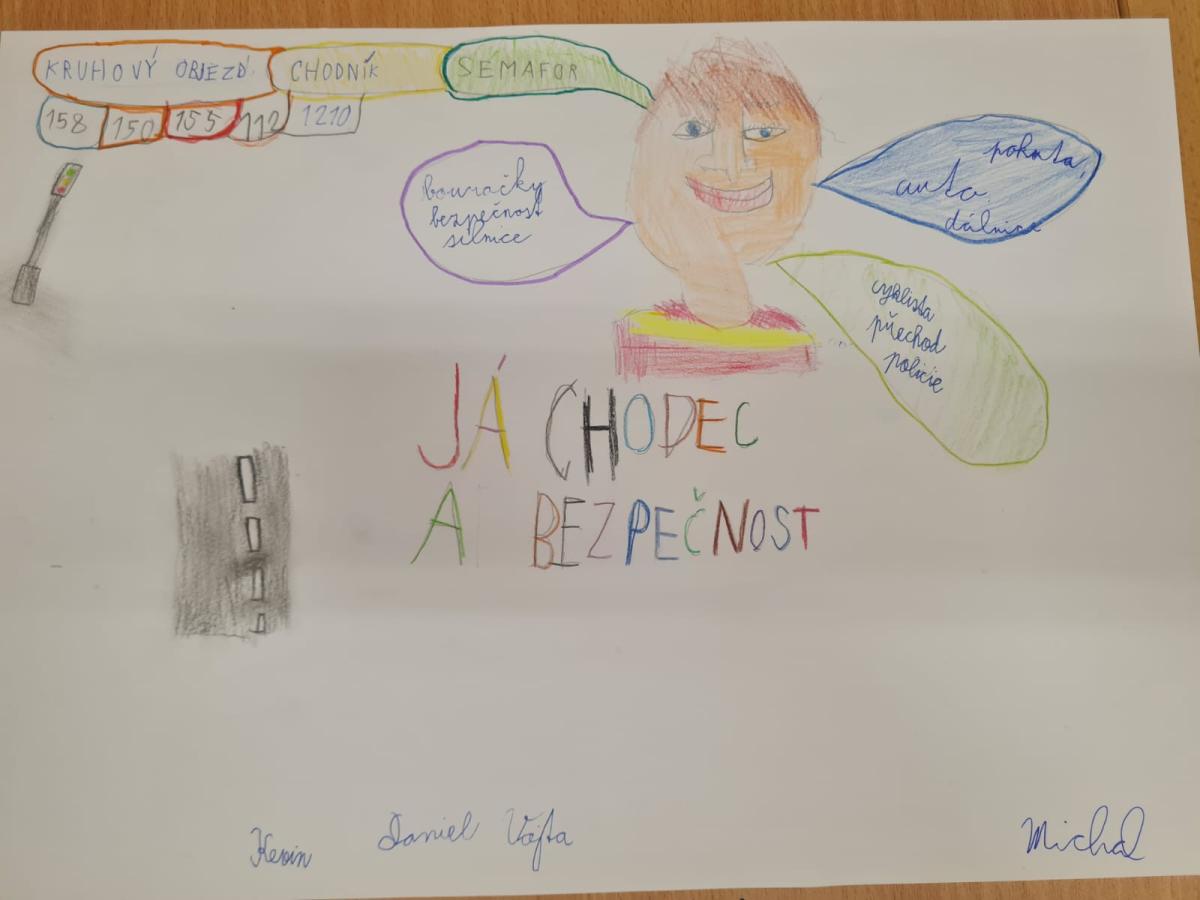 KRUHOVÝ OBJEZD
CHODNÍK
SEMAFOR
158
150
155
112
1210
bouračky
bezpečnost
silnice
pokuta,
auto
dálnice
cyklista
přechod
policie
JÁ CHODEC
A BEZPEČNOST
Kevin
Daniel
Vojta
Michal